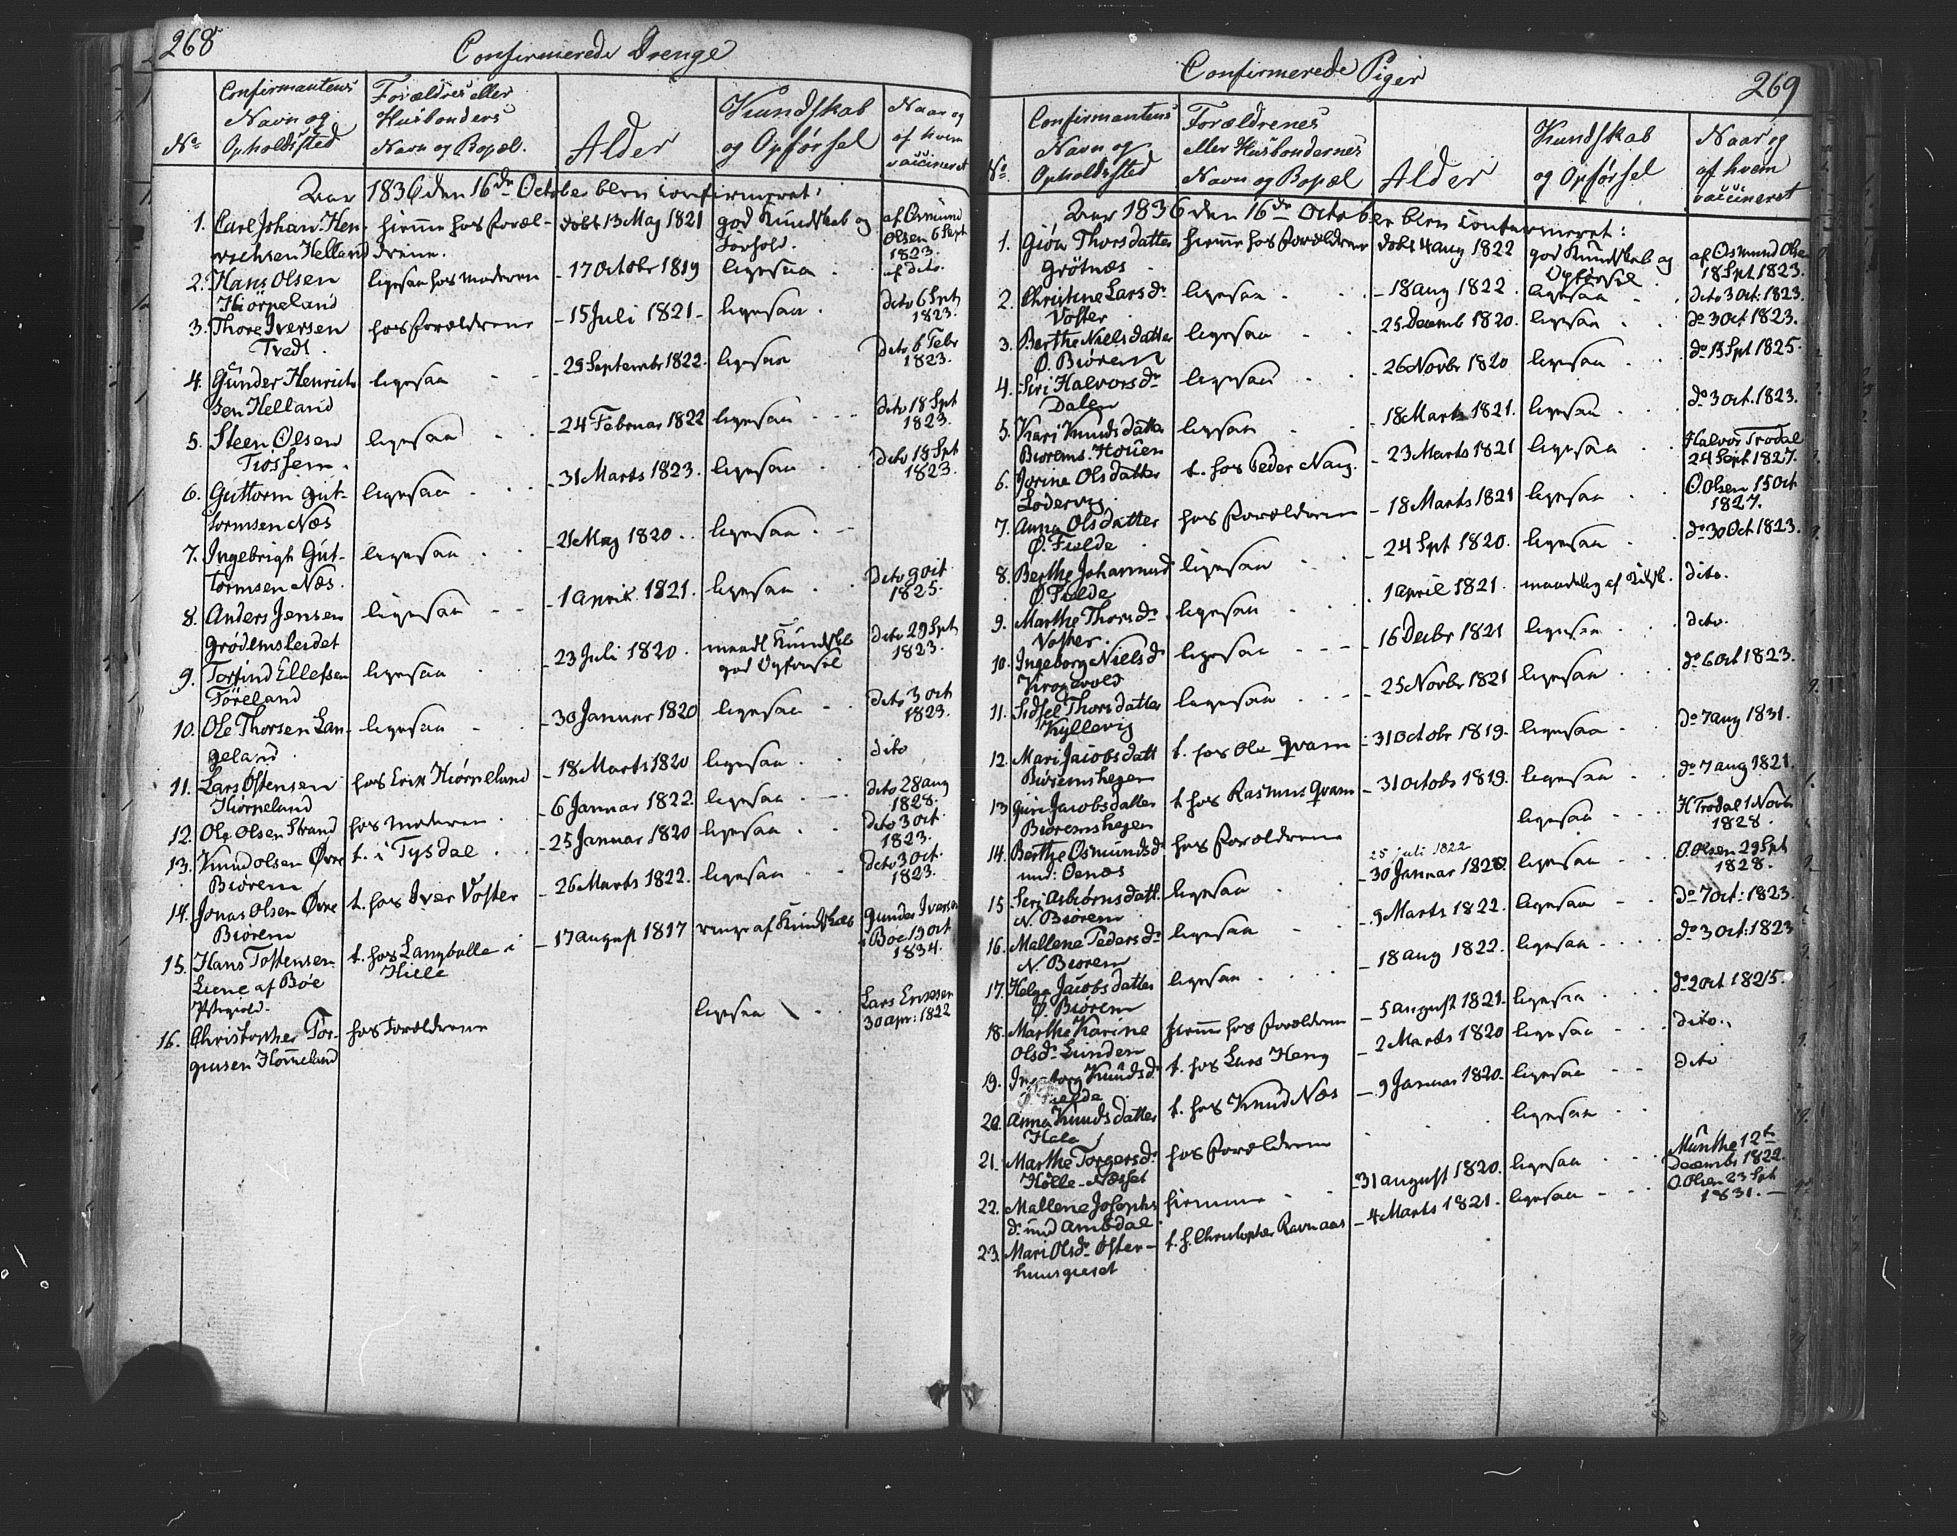 268
Confirmerede Drenge
No
Confirmantens Navn og Opholdssted
Forældres eller Husbonders Navn og Bopæl.
Alder
Kundskab og Opførsel
Naar og af hvem vaccineret
Aar 1836 den 16de October blev confirmeret:
1. Carl Johan Hen- hiemme hos foræl- døbt 13 May 1821 god Kundskab og af Osmund
richsen Helland drene. Forhold. Olsen 6 Sept 1823.
2. Hans Olsen ligesaa hos moderen - 17 Octobr 1819 ligesaa af dito.
Hiörpeland
3. Thore Iversen hos forældrene - 15 Juli 1821 - ligesaa. dito 6 Spt 1823.
Tvedt
4. Gunder Henrich- ligesaa - 29 Septembr 1822. ligesaa dito 6 Febr 1823.
sen Helland
5. Steen Olsen ligesaa - 24 Februar 1822 ligesaa dito 18 Spt 1823.
Tiøssem.
6. Guttorm Gut- ligesaa - 31 Marts 1823. ligesaa dito 18 Spt 1823.
tormsen Næs
7. Ingebrigt Gut- ligesaa - 21 May 1820 ligesaa
tormsen Næs.
8. Anders Jensen ligesaa - 1 April 1821. ligesaa dito 9 oct 1825.
Grødemsleidet
9. Torfind Ellefsen ligesaa - 23 Juli 1820. maadl Kundskb god Opførsel dito 29 Spt 1823.
Föreland
10. Ole Thorsen Lan- ligesaa - 30 Januar 1820 ligesaa dito 3 oct 1823.
geland
11. Lars Östensen hos Erik Hiörpeland - 18 Marts 1820 ligesaa dito
Hiörpeland
12. Ole Olsen Strand hos moderen. - 6 Januar 1822. ligesaa dito 28 aug 1828.
13. Knud Olsen Øvre t. i Tysdal - 25 Januar 1820 ligesaa dito 3 oct. 1823.
Biörem
14. Jonas Olsen Øvre t. hos Iver Voster - 26 Marts 1822. ligesaa dito 3 oct. 1823.
Biörem
15. Hans Tostensen t. hos Langballe i Hille - 17 august 1817 ringe af Kundskab Gunder Iversen i Böe 19 oct 1834.
Liene af Böe
16. Christopher Tor- hos forældrene ligesaa Lars Ericssen 30 apr: 1822
gersen Hommeland
269
Confirmerede Piger
No
Confirmantens Navn og Opholdssted
Forældrenes eller Husbondernes Navn og Bopæl
Alder
Kundskab og Opførsel
Naar og af hvem vaccineret
Aar 1836 den 16de October blev confirmeret:
1. Giöa Thorsdatter hiemme hos forældrene døbt 4 aug 1822 god Kundskab og Opførsel af Osmund Olsen 18 Spt 1823.
Grötnæs
2. Christine Larsdr ligesaa - 18 aug 1822. ligesaa dito 3 Oct: 1823.
Voster
3. Berthe Nielsdatter ligesaa - 25 Decemb 1820. ligesaa do 3 Oct 1823.
Ø. Biörem
4. Siri Halvorsdr ligesaa - 26 Novbr 1820 ligesaa do 13 Spt 1825.
Dalen
5. Kari Knudsdatter ligesaa - 18 Marts 1821. ligesaa do 3 oct. 1823.
Biörems-Houen
6. Jorine Olsdatter t. hos Peder Naug. - 23 Marts 1821 ligesaa Halvor Trodal 24 Sept 1827.
Lodervig
7. Anna Olsdatter hos forældrene - 18 Marts 1821 ligesaa O. Olsen 15 Oct 1827.
Ø. Fielde
8. Berthe Johannesd ligesaa - 24 Spt 1820. ligesaa do 30 Oct 1823.
Ø. Fielde
9. Marthe Thorsdr ligesaa 1 april 1821. maadelig af Kdsk. dito.
Voster.
10. Ingeborg Nielsdr ligesaa - 16 Decbr 1821 ligesaa dito.
Kragevold
11. Sidsel Thorsdatter ligesaa - 25 Novbr 1821 ligesaa do 6 Oct 1823.
Kyllevig
12. Mari Jacobsdatt t. hos Ole Qvam - 31 Octobr 1819. ligesaa do 7 aug 1831.
Biöremshagen
13. Guri Jacobsdatter t. hos Rasmus Qvam - 31 Octobr 1819. ligesaa do 7 aug 1821.
Biöremshagen
14. Berthe Osmundsdr hos forældrene 25 juli 1822 ligesaa H Trodal 1 Novbr 1828.
und: Oenæs
15. Siri Asbörnsdatt. ligesaa - 30 Januar 1820 ligesaa O. Olsen 29 Spt 1828.
N. Biörem
16. Mallene Pedersdr ligesaa - 9 Marts 1822. ligesaa do 7 Oct: 1823.
N. Biörem
17. Helga Jacobsdatter ligesaa - 18 aug 1822. ligesaa do 3 Oct: 1823
Ø. Biörem
18. Marthe Karine hiemme hos forældrene - 5 august 1821. ligesaa do 2 Oct 1825.
Olsdr Lunden
19. Ingeborg Knudsdr t. hos Lars Heng - 2 Marts 1820 ligesaa dito.
Ø. Fielde
20. Anna Knudsdatter t. hos Knud Næs - 9 Januar 1820. ligesaa dito
Hele
21. Marthe Torgersdr hos forældrene ligesaa
Hölle-Næsset
22. Mallene Josephs hiemme - 31 august 1820. ligesaa Munthe 12te Decembr 1822.
dr. und Ambdal
23. Mari Olsdr Öster- t. h. Christopher Ravnaas - 4 Marts 1821. ligesaa O. Olsen 23 Spt 1831.
huusgieret